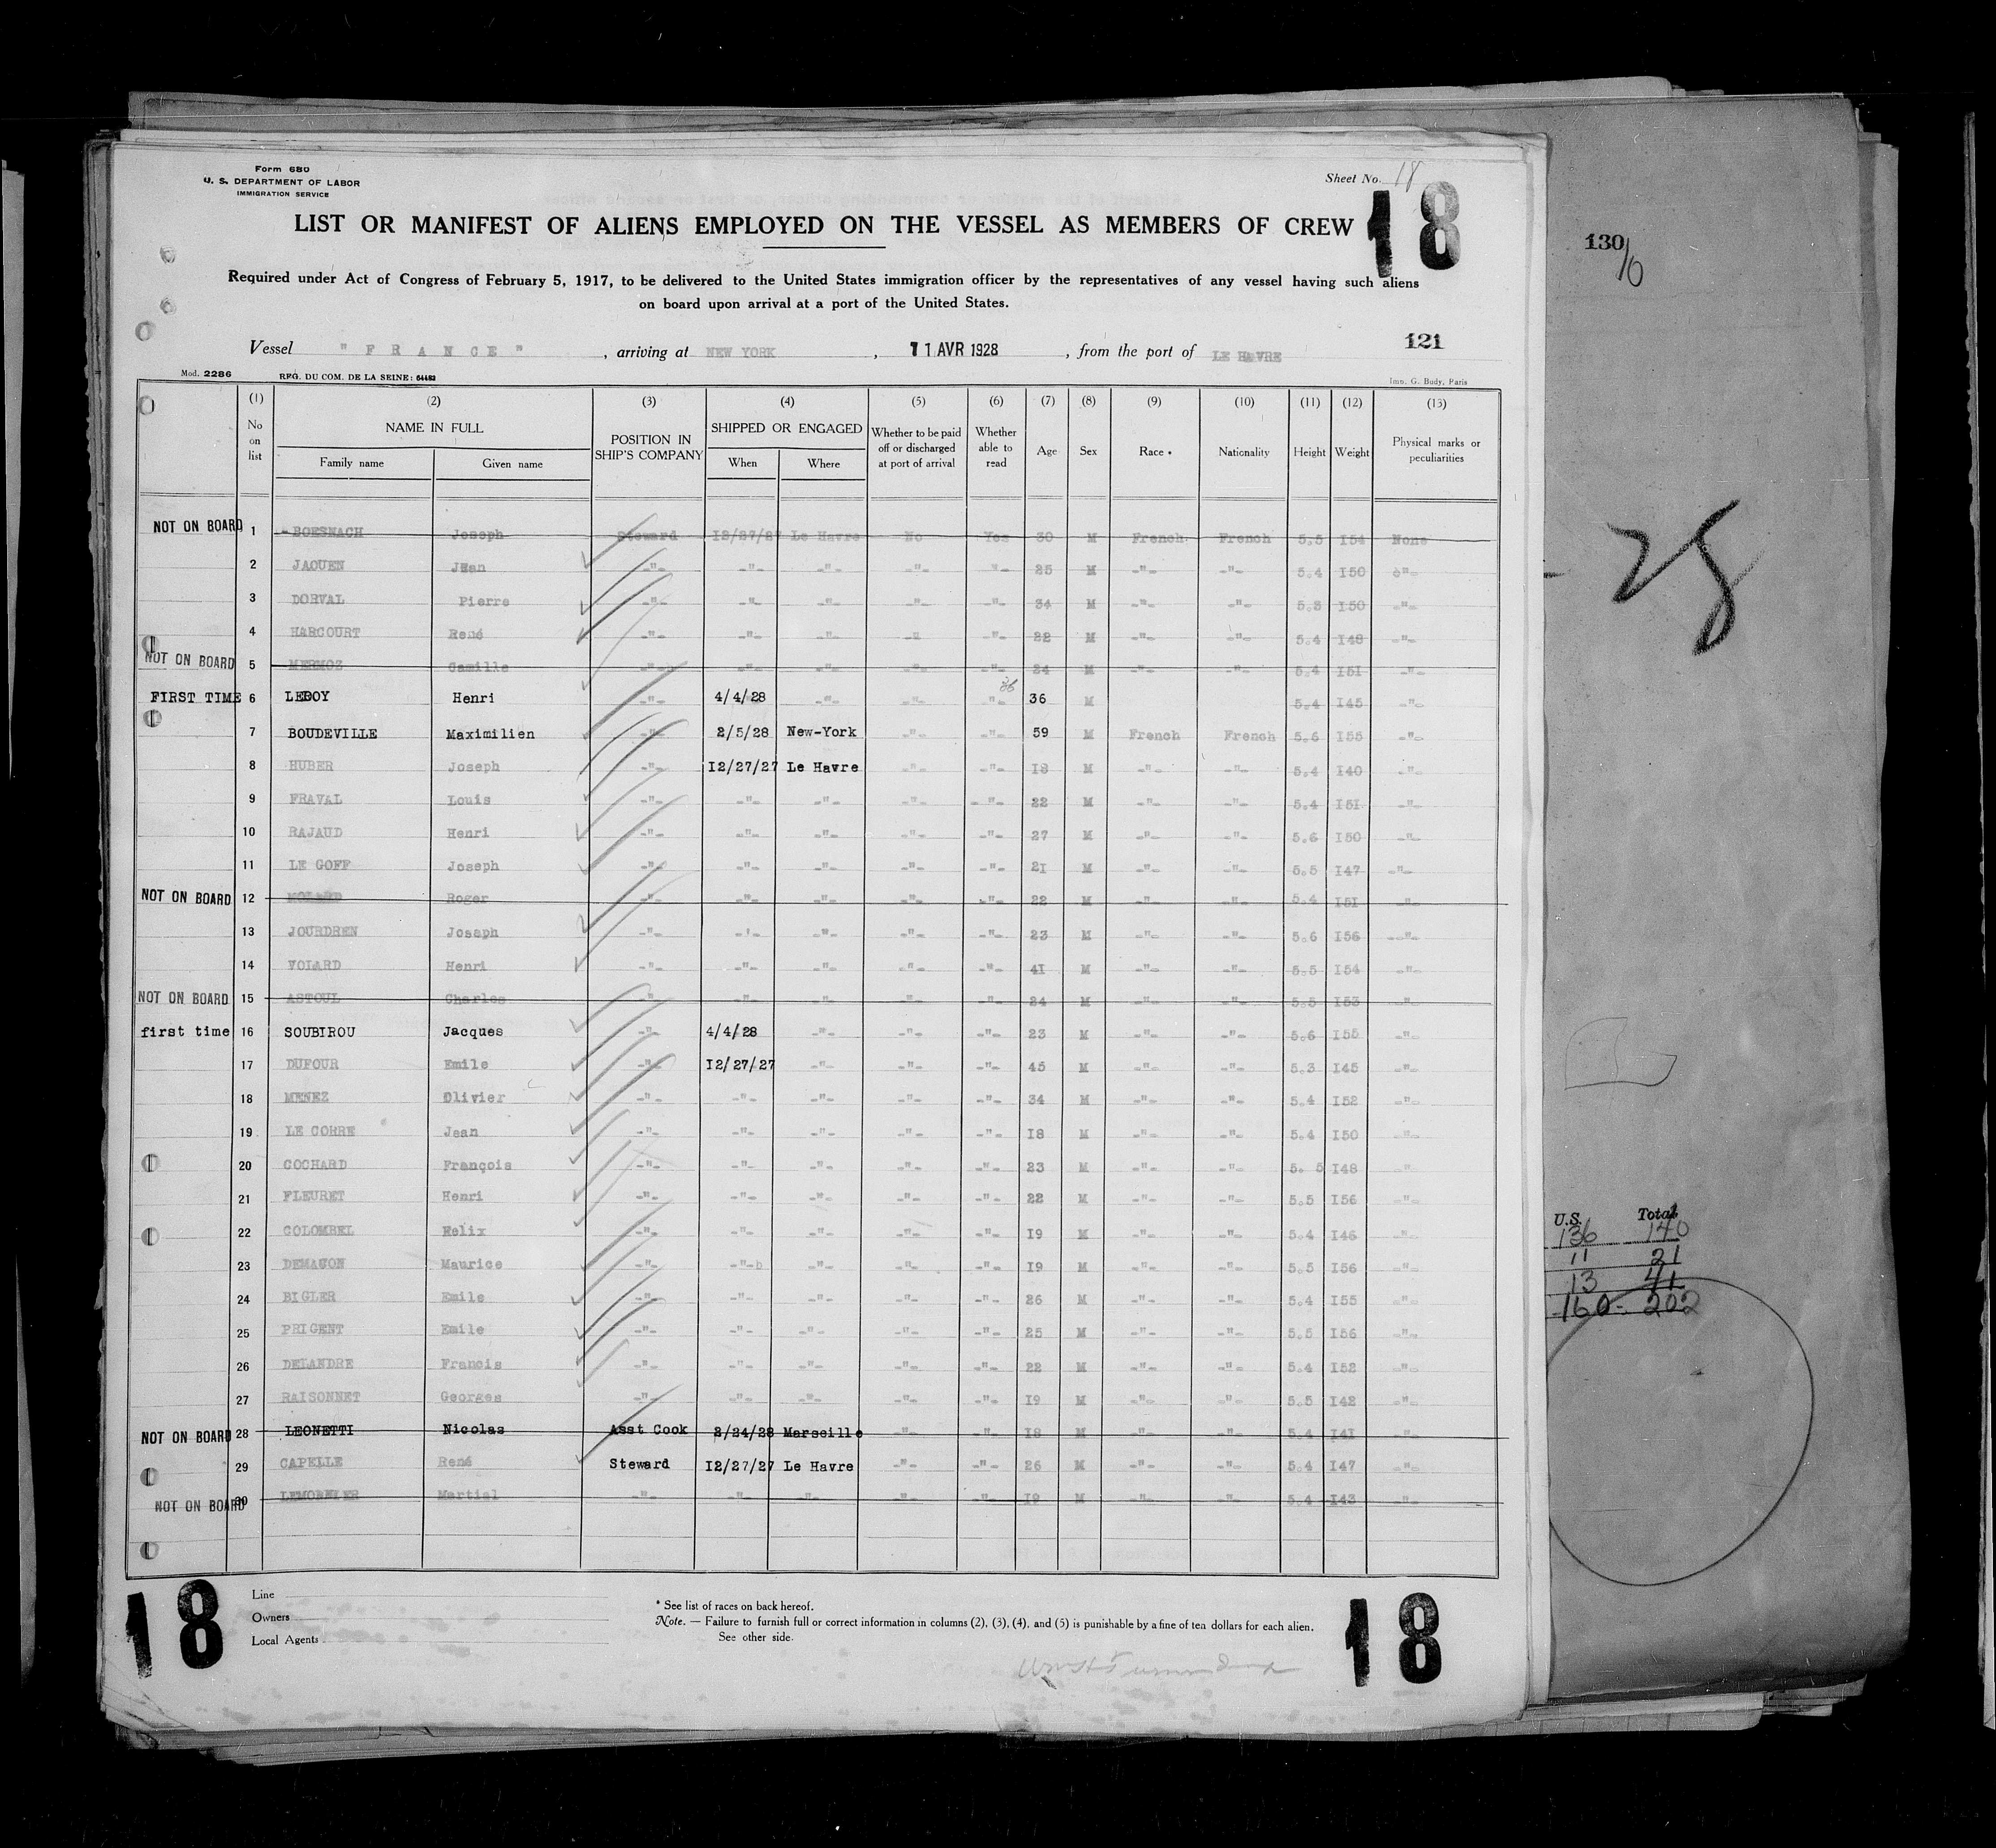 Form 680
U. S. DEPARTMENT OF LABOR
IMMIGRATION SERVICE
Sheet No. 18
18
LIST OR MANIFEST OF ALIENS EMPLOYED ON THE VESSEL AS MEMBERS OF CREW
Required under Act of Congress of February 5, 1917, to be delivered to the United States immigration officer by the representatives of any vessel having such aliens
on board upon arrival at a port of the United States.
130
121
Vessel "FRANCE", arriving at NEW YORK, 11 AVR 1928, from the port of LE HAVRE
Mod. 2286 REG. DU COM. DE LA SEINE: Imp. G. Budy, Paris
(1) (2) (3) (4) (5) (6) (7) (8) (9) (10) (11) (12) (13)
No on list NAME IN FULL Family name Given name POSITION IN SHIP'S COMPANY SHIPPED OR ENGAGED When Where Whether to be paid off or discharged at port of arrival Whether able to read Age Sex Race * Nationality Height Weight Physical marks or peculiarities
NOT ON BOARD 1 BOESNACH Joseph Steward 12/27/27 Le Havre No Yes 30 M French French 5.5 154 None
2 JAOUEN Jean -"- -"- -"- -"- -"- 25 M -"- -"- 5.4 150 -"-
3 DORVAL Pierre -"- -"- -"- -"- -"- 34 M -"- -"- 5.3 150 -"-
4 HARCOURT René -"- -"- -"- -"- -"- 22 M -"- -"- 5.4 148 -"-
NOT ON BOARD 5 MERMOZ Camille -"- -"- -"- -"- -"- 24 M -"- -"- 5.4 151 -"-
FIRST TIME 6 LEROY Henri -"- 4/4/28 -"- -"- -"- 36 36 M 5.4 145 -"-
7 BOUDEVILLE Maximilien -"- 2/5/28 New-York -"- -"- 59 M French French 5.6 155 -"-
8 HUBER Joseph -"- 12/27/27 Le Havre -"- -"- 18 M -"- -"- 5.4 140 -"-
9 FRAVAL Louis -"- -"- -"- -"- -"- 22 M -"- -"- 5.4 151 -"-
10 RAJAUD Henri -"- -"- -"- -"- -"- 27 M -"- -"- 5.6 150 -"-
11 LE GOFF Joseph -"- -"- -"- -"- -"- 21 M -"- -"- 5.5 147 -"-
NOT ON BOARD 12 Roger -"- -"- -"- -"- -"- 22 M -"- -"- 5.4 151 -"-
13 JOURDREN Joseph -"- -"- -"- -"- -"- 23 M -"- -"- 5.6 156 -"-
14 VOLARD Henri -"- -"- -"- -"- -"- 41 M -"- -"- 5.5 154 -"-
NOT ON BOARD 15 ASTOUL Charles -"- -"- -"- -"- -"- 24 M -"- -"- 5.5 153 -"-
first time 16 SOUBIROU Jacques -"- 4/4/28 -"- -"- -"- 23 M -"- -"- 5.6 155 -"-
17 DUFOUR Emile -"- 12/27/27 -"- -"- -"- 45 M -"- -"- 5.3 145 -"-
18 MENEZ Olivier -"- -"- -"- -"- -"- 34 M -"- -"- 5.4 152 -"-
19 LE CORRE Jean -"- -"- -"- -"- -"- 18 M -"- -"- 5.4 150 -"-
20 COCHARD François -"- -"- -"- -"- -"- 23 M -"- -"- 5. 5 148 -"-
21 FLEURET Henri -"- -"- -"- -"- -"- 22 M -"- -"- 5.5 156 -"-
22 COLOMBEL Felix -"- -"- -"- -"- -"- 19 M -"- -"- 5.4 146 -"-
23 DEMAUON Maurice -"- -"-b -"- -"- -"- 19 M -"- -"- 5.5 156 -"-
24 BIGLER Emile -"- -"- -"- -"- -"- 26 M -"- -"- 5.4 155 -"-
25 PRIGENT Emile -"- -"- -"- -"- -"- 25 M -"- -"- 5.5 156 -"-
26 DELANDRE Francis -"- -"- -"- -"- -"- 22 M -"- -"- 5.4 152 -"-
27 RAISONNET Georges -"- -"- -"- -"- -"- 19 M -"- -"- 5.5 142 -"-
NOT ON BOARD 28 LEONETTI Nicolas Asst Cook 2/24/28 Marseille -"- -"- 18 M -"- -"- 5.4 141 -"-
29 CAPELLE René Steward 12/27/27 Le Havre -"- -"- 26 M -"- -"- 5.4 147 -"-
NOT ON BOARD 30 Martial -"- -"- -"- -"- -"- 19 M -"- -"- 5.4 143 -"-
U.S. Total
136 140
11 21
13 41
160- 202
18
Line
Owners
Local Agents
* See list of races on back hereof.
Note. — Failure to furnish full or correct information in columns (2), (3), (4), and (5) is punishable by a fine of ten dollars for each alien.
See other side.
18